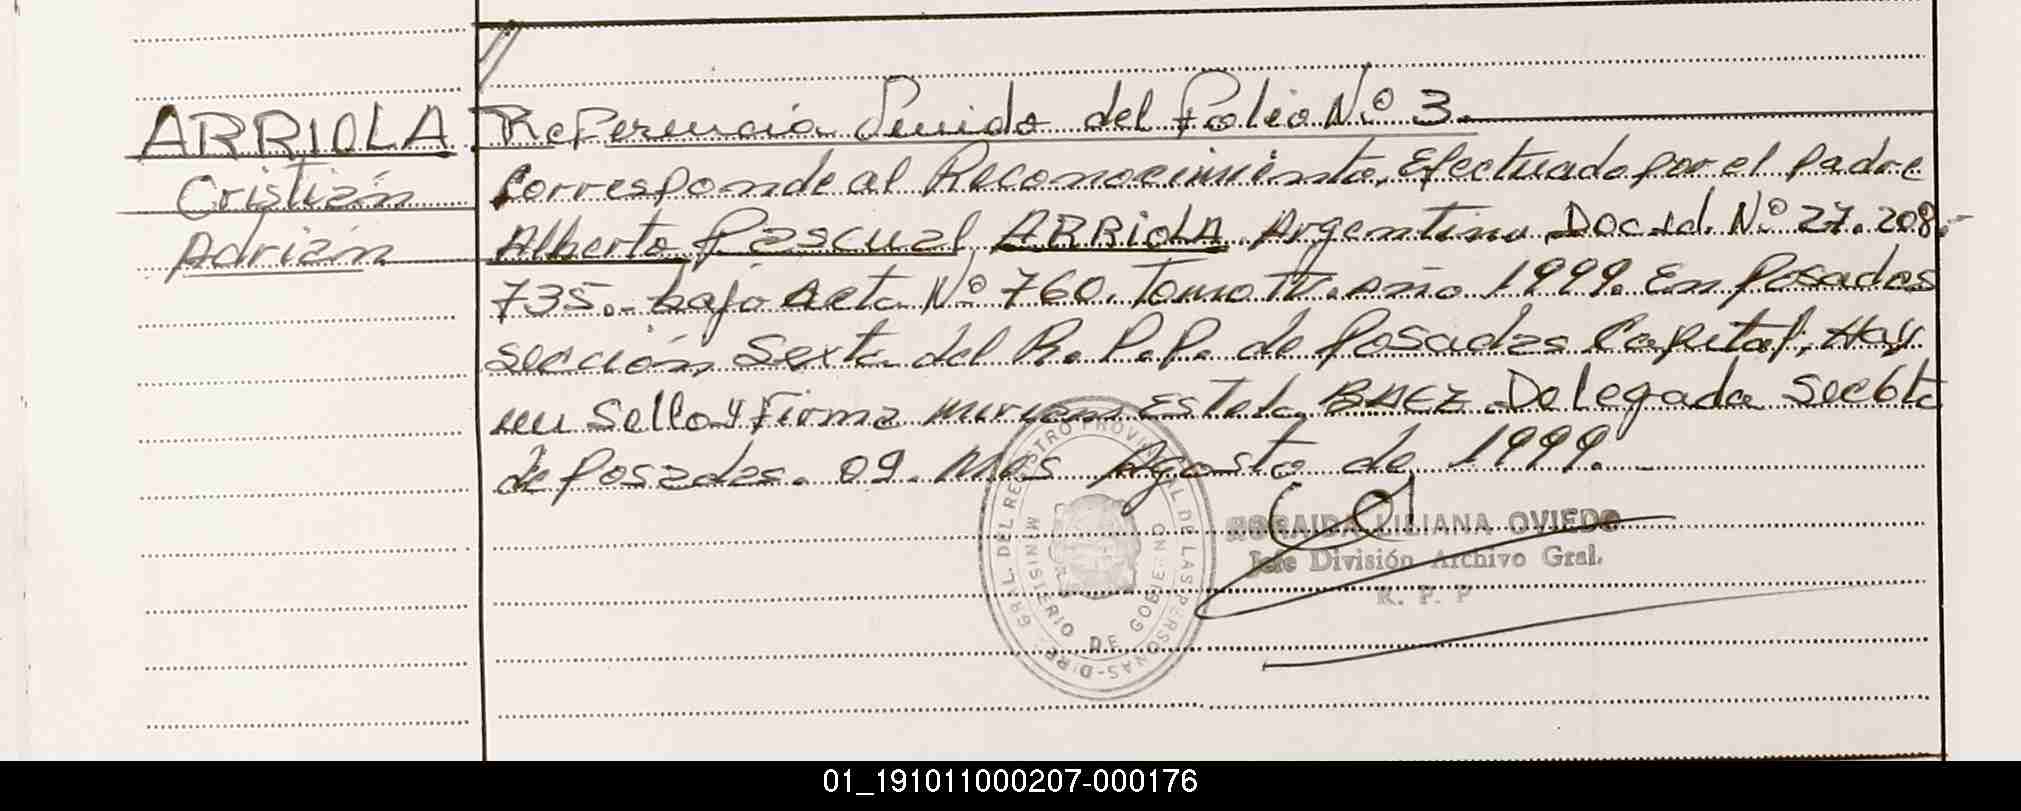 ARRIOLA
Cristián
Adrián
Referencia Venido del Folio Nº 3.
Corresponde al Reconocimiento, Efectuado por el padre
Alberto Pascual ARRIOLA Argentino Doc. Id. Nº 27.208.-
735.- bajo Acta Nº 760. Tomo IV. año 1999. En Posadas
sección, Sexta del R. P. P. de Posadas Capital; Hay
un Sello y Firma Miriam Estela BAEZ Delegada Sec 6ta
de Posadas. 09. Mes Agosto de 1999.
DIRE. GRAL. DEL REGISTRO PROVINCIAL DE LAS PERSONAS
MINISTERIO DE GOBIERNO
LILIANA OVIEDO
Jefe División Archivo Gral.
R. P. P
01_191011000207-000176